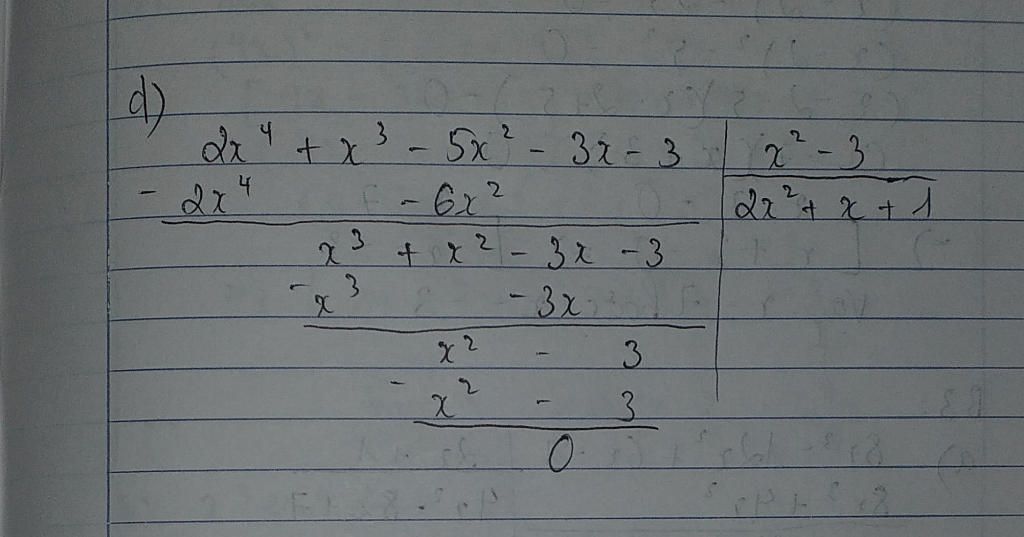 d)
2x⁴ + x³ - 5x² - 3x - 3 | x² - 3
- 2x⁴ - 6x² | 2x² + x + 1
x³ + x² - 3x - 3
- x³ - 3x
x² - 3
- x² - 3
0